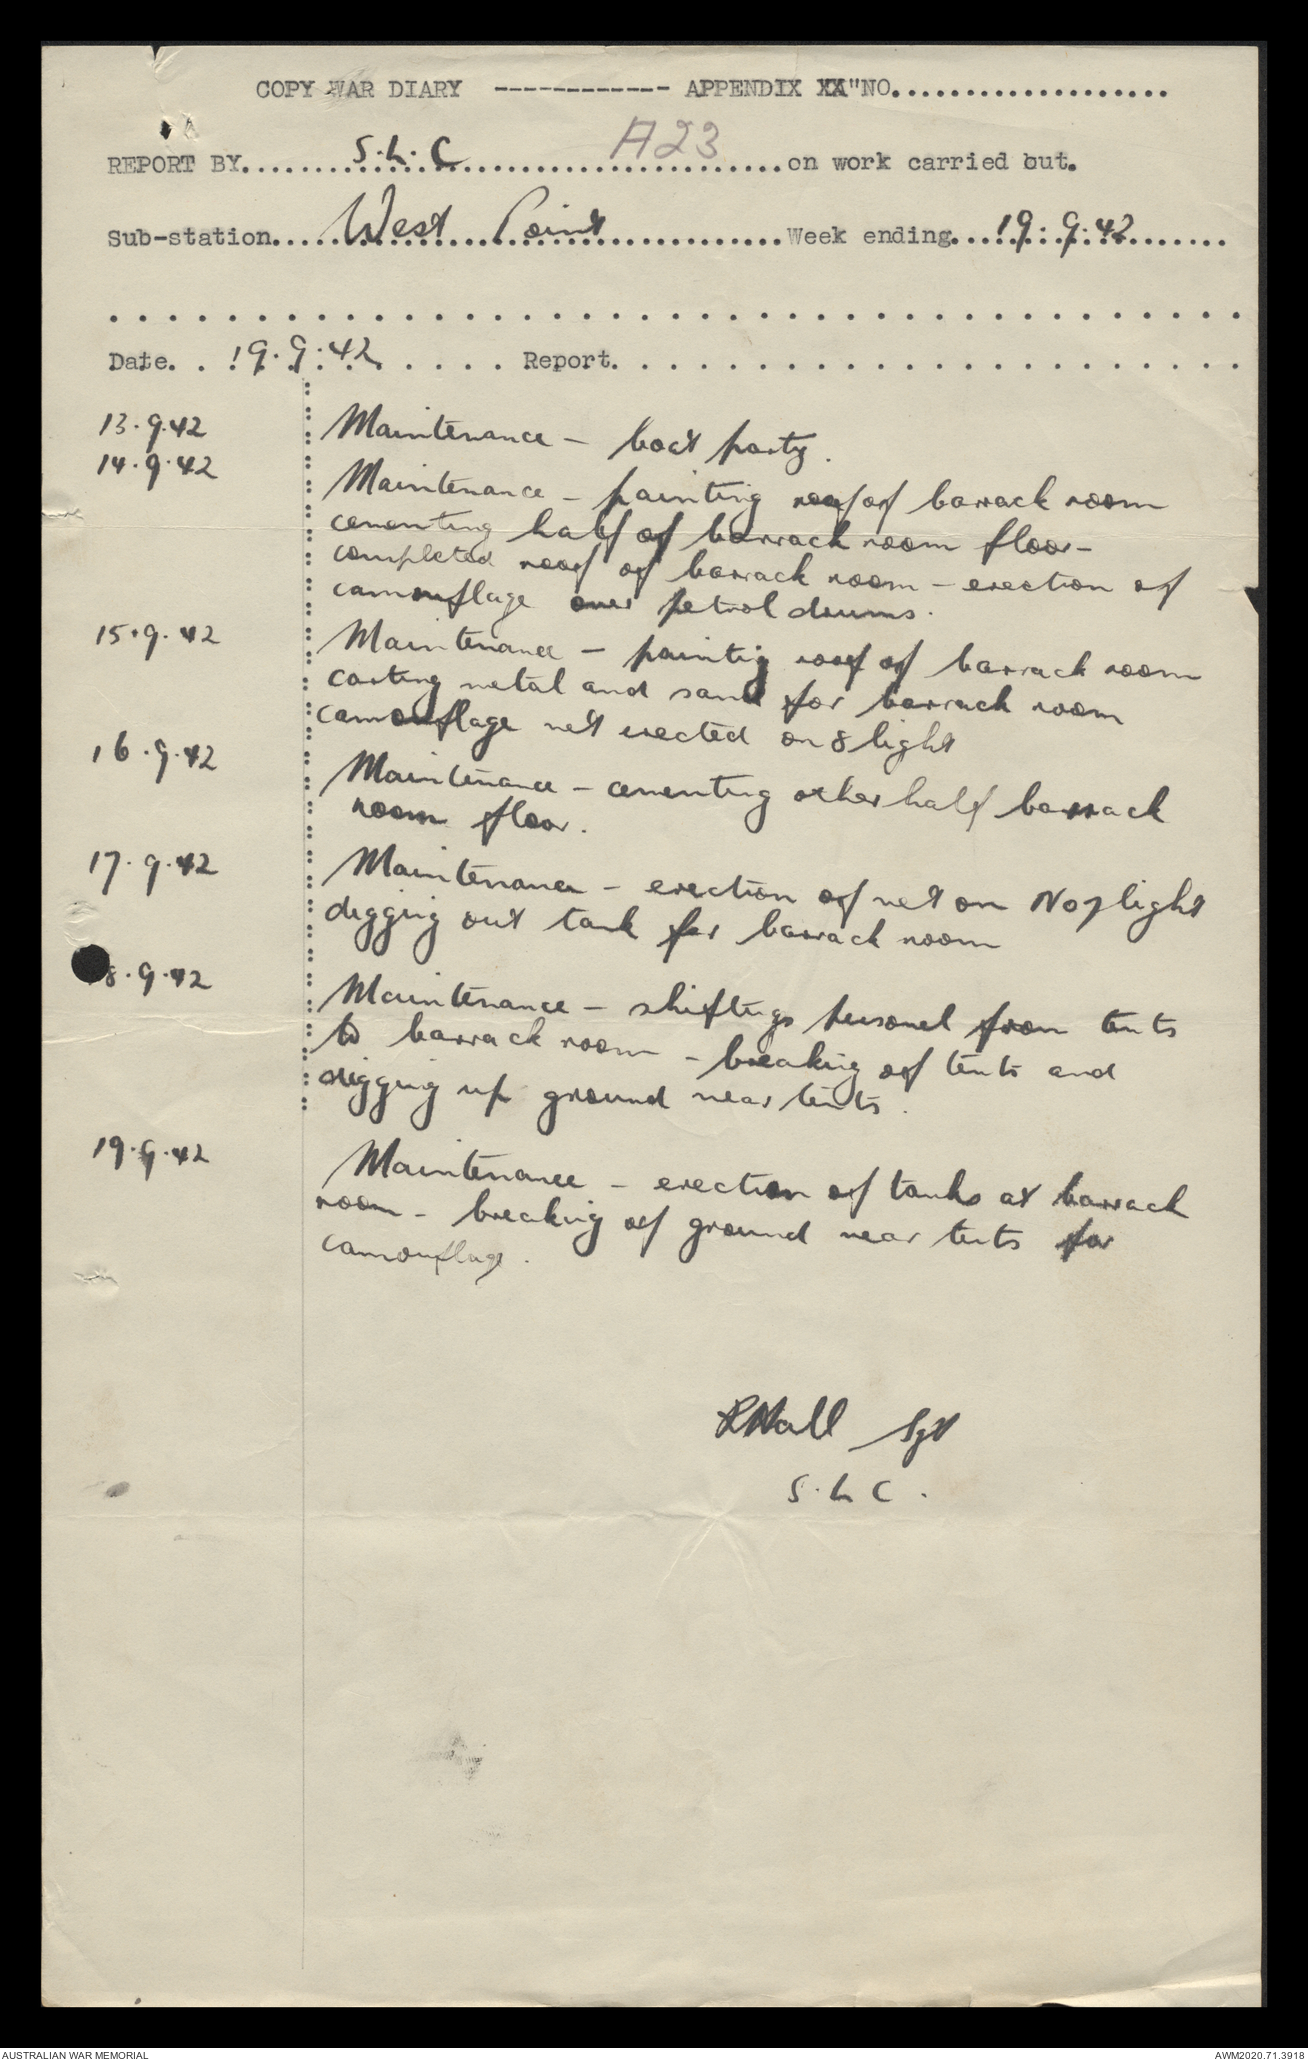 COPY WAR DIARY ------------ APPENDIX XX"NO...................
A23
REPORT BY........S.L.C.......................on work carried out.
Sub-station.....West Point............Week ending...19.9.42.......
Date. . 19.9.42 . . . . . Report. . . . . . . . . . . . . . . . . . . . . .
13.9.42 Maintenance - boat party.
14.9.42 Maintenance - painting roof of barrack room
cementing half of barrack room floor-
completed roof of barrack room - erection of
camouflage over petrol drums.
15.9.42 Maintenance - paintig roof of barrack room
carting metal and sand for barrack room
camouflage net erected on 8 light
16.9.42 Maintenance - cementing other half barrack
room floor.
17.9.42 Maintenance - erection of net on No 7 light
digging out tank for barrack room
8.9.42 Maintenance - shiftings personel from tents
to barrack room - breaking of tents and
digging up ground near tents.
19.9.42 Maintenance - erection of tanks at barrack
room - breaking of ground near tents for
camouflage.
RHall Sgt
S.L.C.
AUSTRALIAN WAR MEMORIAL
AWM2020.71.3918